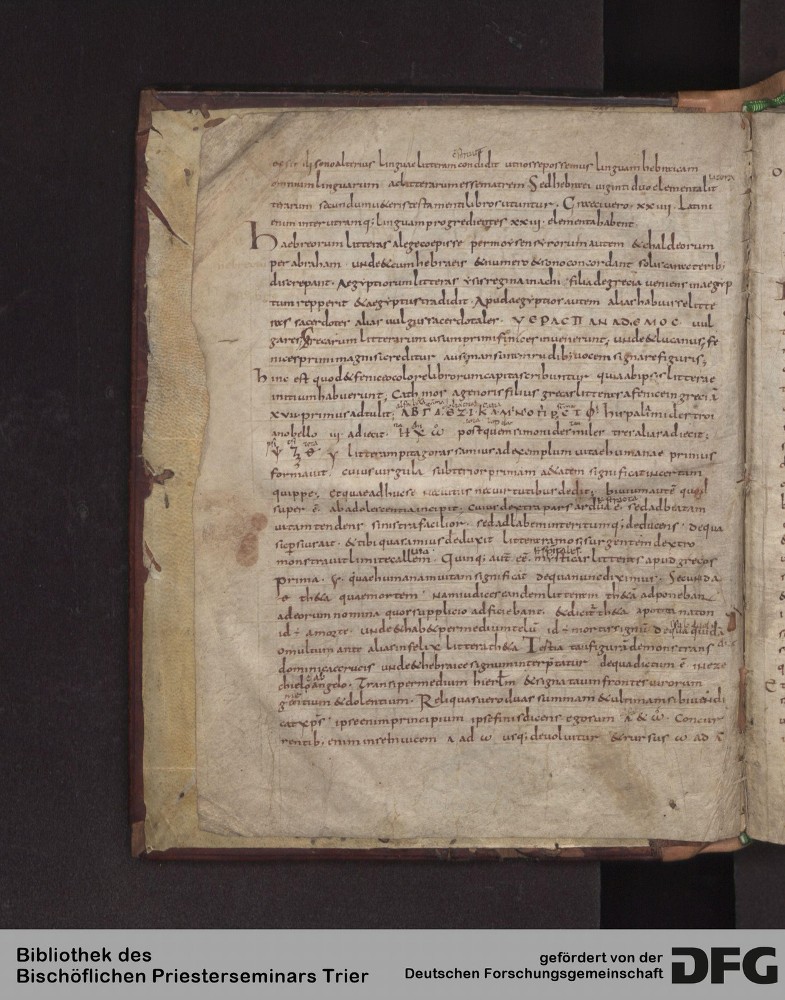 linguae litteram condidit ut nosse possemus linguam hebraicam
omnium linguarum ac litterarum esse matrem Sed hebrei viginti duo elementa litterarum
terarum secundum ueteris testamenti libros utuntur. Greci uero. xx.iiii. Latini
enim inter utramq; linguam progredientes xxiii. elementa habent
Haebreorum litteras a lege coepisse per moysen syrorum autem & chaldeorum
per abraham unde & cum hebraeis & numero & sono concordant solis caracterib;
discrepant. Aegyptiorum litteras ysis regina inachi filia de grecia ueniens in aegyp
tum repperit & aegyptus tradidit. Apud aegyptios autem alias habuisse litte
ras sacerdotes alias uulgus sacerdotales. ΥΕΡΑCΠ ΑΝΑΔΕΜΟC uul
gares Grecarum litterarum usum primi finices inuenerunt, unde & lucanus, fe
nices primi magnis creditur ausi mansuram rudib; uocem signare figuris;
hinc est quod & feniceo colore librorum capita scribuntur quia ab ipsis litterae
initium habuerunt; Cathmos agenoris filius grecas litteras a fence in grecia
xvii primus adtulit; ΑΒΓΔΕΖΙΚΛΜΝΟΠΡCΤΦ his palamides troi
ano bello iii adiecit. Η Χ ω post quem simonides miler tres alias adiecit;
Υ litteram pitagoras samius ad exemplum uitae humanae primus
formauit cuius uirgula subterior primam aetatem significat incertam
quippe; et quae adhuc se nec uitiis nec uirtutibus dedit; biuium autē quod
super ē ab adolescentia incipit cuius dextra pars ardua ē sed ad beatam
uitam tendens sinistra facilior sed ad labem interitumq; deducens de qua
sic persius ait & tibi qua samius deduxit litteram ramos surgentem dextro
monstrauit limite callem. Quinq; autē eē mysticas litteras apud grecos
prima Υ quae humanam uitam significat de qua nunc diximus. Secunda
Θ theta quae mortem nam iudices eandem litteram theta adponebant
ad eorum nomina quos supplicio adficiebant & dicitur theta apo tu naton
id ÷ a morte unde & habet per medium telū id ÷ mortis signū de qua quida
o multum ante alias infelix littera theta. Tertia tau figurā demonstrans
dominicae crucis unde & hebraice signum interpretatur de qua dictum ē in eze
chielo angelo. Transi per medium hierlm & signa tau in frontes uirorum
gementium & dolentium. Reliquas uero duas summam & ultimam sibi uendi
cat xps ipse enim principium ipse finis dicens ego sum Α & ω. Concur
rentib; enim in se inuicem Α ad ω usq; deuoluitur & rursus ω ad Α
Bibliothek des
Bischöflichen Priesterseminars Trier
gefördert von der
Deutschen Forschungsgemeinschaft
DFG